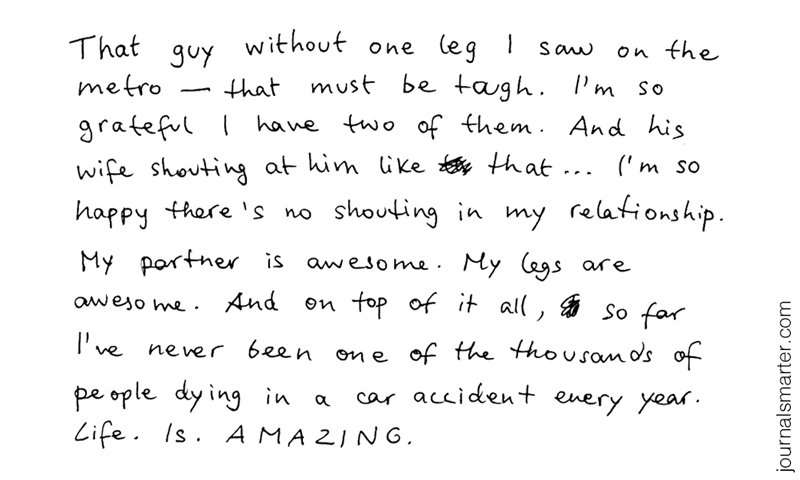 That guy without one leg I saw on the
metro — that must be tough. I'm so
grateful I have two of them. And his
wife shouting at him like that... I'm so
happy there's no shouting in my relationship.
My partner is awesome. My legs are
awesome. And on top of it all, so far
I've never been one of the thousands of
people dying in a car accident every year.
Life. Is. AMAZING.
journalsmarter.com